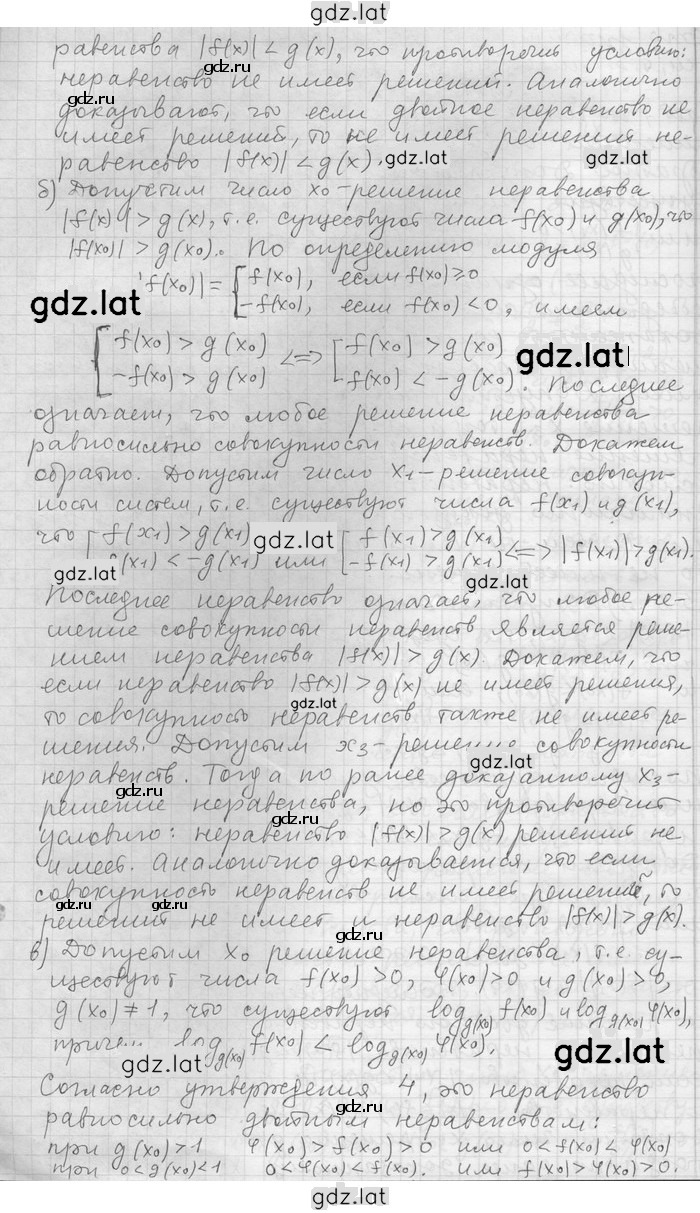 gdz.lat
равенства |f(x)| < g(x), что противоречит условию:
неравенство не имеет решений. Аналогично
доказывают, что если двойное неравенство не
имеет решений, то не имеет решения не-
равенство |f(x)| < g(x). gdz.lat
б) Допустим число x₀ - решение неравенства
|f(x)| > g(x), т.е. существуют числа f(x₀) и g(x₀), что
|f(x₀)| > g(x₀). По определению модуля
|f(x₀)| = { f(x₀), если f(x₀) ≥ 0
gdz.lat
-f(x₀), если f(x₀) < 0, имеем
[ f(x₀) > g(x₀) <=> [ f(x₀) > g(x₀) gdz.lat
-f(x₀) > g(x₀) f(x₀) < -g(x₀). Последнее
означает, что любое решение неравенства
равносильно совокупности неравенств. Докажем
обратно. Допустим число x₁ - решение совокуп-
ности систем, т.е. существуют числа f(x₁) и g(x₁),
что [ f(x₁) > g(x₁) gdz.lat [ f(x₁) > g(x₁)
f(x₁) < -g(x₁) или -f(x₁) > g(x₁) <=> |f(x₁)| > g(x₁).
gdz.lat gdz.lat
Последнее неравенство означает, что любое ре-
шение совокупности неравенств является реше-
нием неравенства |f(x)| > g(x). Докажем, что
если неравенство |f(x)| > g(x) не имеет решения,
gdz.lat
то совокупность неравенств также не имеет ре-
шения. Допустим x₃ - реше... совокупности
gdz.lat
неравенств. Тогда по ранее доказанному x₃ -
gdz.ru gdz.ru
решение неравенства, но это противоречит
условию: неравенство |f(x)| > g(x) решений не
имеет. Аналогично доказывается, что если
совокупность неравенств не имеет решений, то
gdz.ru gdz.ru
решений не имеет и неравенство |f(x)| > g(x).
gdz.ru
в) Допустим x₀ решение неравенства, т.е. су-
ществуют числа f(x₀) > 0, φ(x₀) > 0 и g(x₀) > 0,
g(x₀) ≠ 1, что существуют log g(x₀) f(x₀) и log g(x₀) φ(x₀),
приче... log g(x₀) f(x₀) < log g(x₀) φ(x₀).
gdz.lat gdz.lat
Согласно утверждения 4, это неравенство
gdz.ru gdz.ru
равносильно двойным неравенствам:
при g(x₀) > 1 φ(x₀) > f(x₀) > 0 или 0 < f(x₀) < φ(x₀)
при 0 < g(x₀) < 1 0 < φ(x₀) < f(x₀). или f(x₀) > φ(x₀) > 0.
gdz.lat